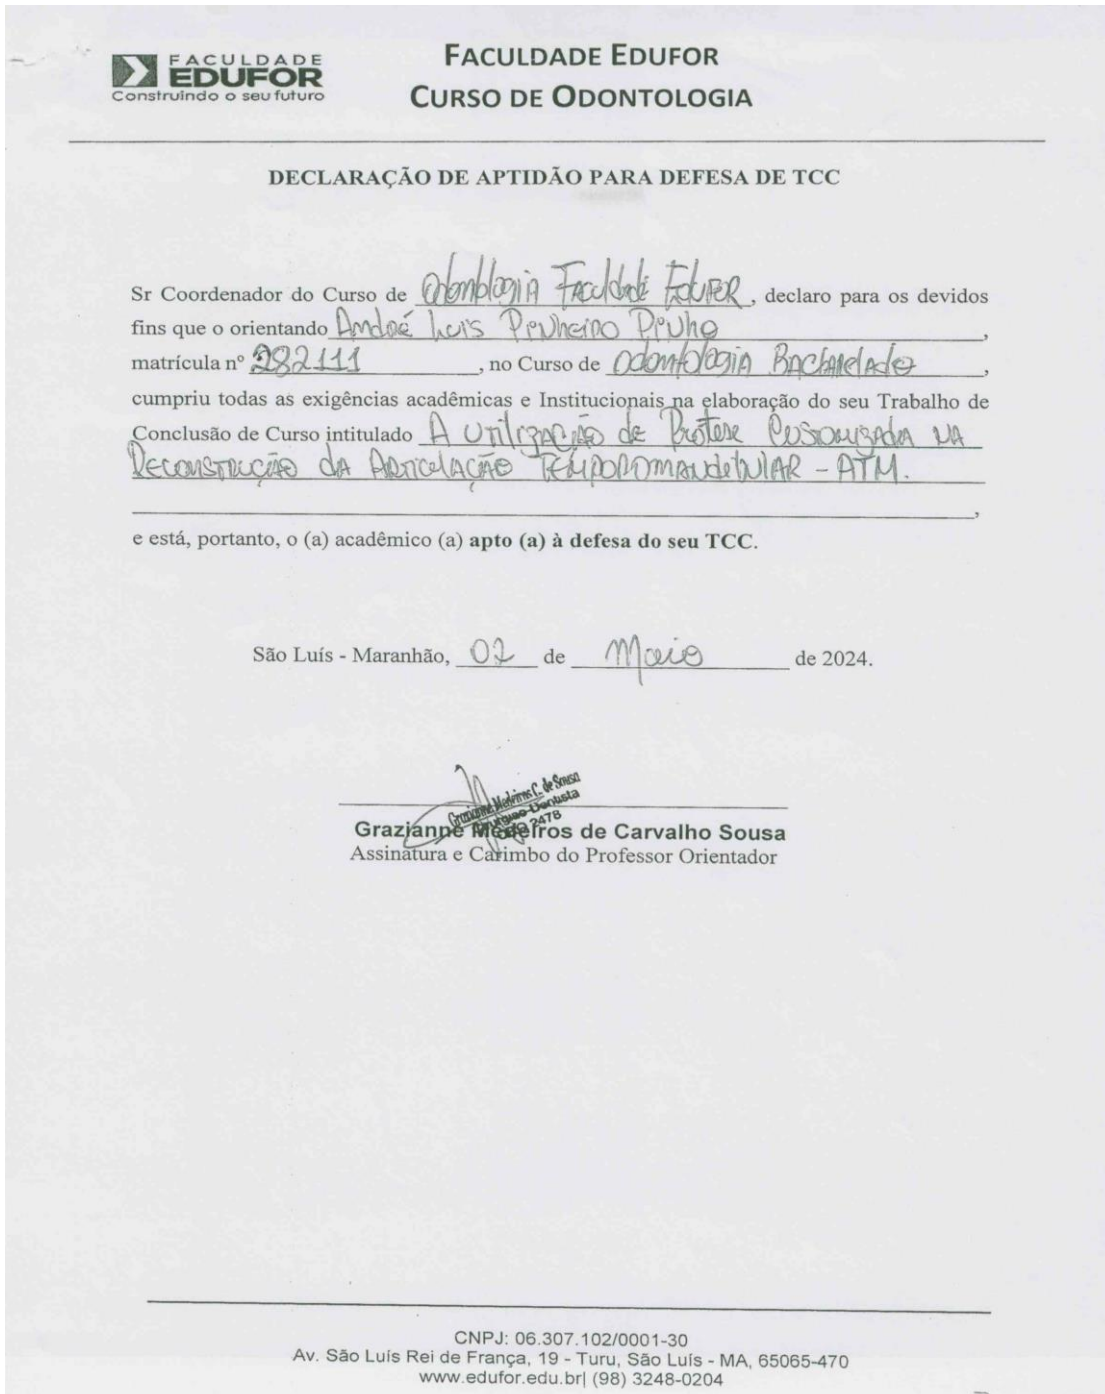 FACULDADE
EDUFOR
Construindo o seu futuro
FACULDADE EDUFOR
CURSO DE ODONTOLOGIA
DECLARAÇÃO DE APTIDÃO PARA DEFESA DE TCC
Sr Coordenador do Curso de Odontologia Faculdade Edufor, declaro para os devidos
fins que o orientando André Luis Pinheiro Pinho,
matrícula nº 282111, no Curso de Odontologia Bacharelado,
cumpriu todas as exigências acadêmicas e Institucionais na elaboração do seu Trabalho de
Conclusão de Curso intitulado A Utilização de Prótese Customizada na
Reconstrução da Articulação Temporomandibular - ATM.
,
e está, portanto, o (a) acadêmico (a) apto (a) à defesa do seu TCC.
São Luís - Maranhão, 02 de Maio de 2024.
Grazianne Medeiros C. de Sousa
Cirurgião Dentista
2478
Grazianne Medeiros de Carvalho Sousa
Assinatura e Carimbo do Professor Orientador
CNPJ: 06.307.102/0001-30
Av. São Luís Rei de França, 19 - Turu, São Luís - MA, 65065-470
www.edufor.edu.br| (98) 3248-0204